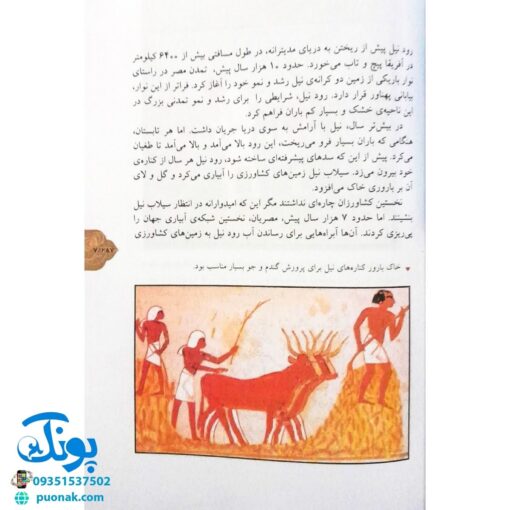 رود نیل پیش از ریختن به دریای مدیترانه، در طول مسافتی بیش از ۶۴۰۰ کیلومتر
در آفریقا پیچ و تاب می‌خورد. حدود ۱۰ هزار سال پیش، تمدن مصر در راستای
نوار باریکی از زمین دو کرانه‌ی نیل رشد و نمو خود را آغاز کرد. فراتر از این نوار،
بیابانی پهناور قرار دارد. رود نیل، شرایطی را برای رشد و نمو تمدنی بزرگ در
این ناحیه‌ی خشک و بسیار کم باران فراهم کرد.
در بیش‌تر سال، نیل با آرامش به سوی دریا جریان داشت. اما هر تابستان،
هنگامی که باران بسیار فرو می‌ریخت، این رود بالا می‌آمد و بالا می‌آمد تا طغیان
می‌کرد. پیش از این که سدهای پیشرفته‌ای ساخته شود، رود نیل هر سال از کناره‌ی
خود بیرون می‌زد. سیلاب نیل زمین‌های کشاورزی را آبیاری می‌کرد و گل و لای
آن بر باروری خاک می‌افزود.
نخستین کشاورزان چاره‌ای نداشتند مگر این که امیدوارانه در انتظار سیلاب نیل
بنشینند. اما حدود ۷ هزار سال پیش، مصریان، نخستین شبکه‌ی آبیاری جهان را
پی‌ریزی کردند. آن‌ها آبراه‌هایی برای رساندن آب رود نیل به زمین‌های کشاورزی
خاک بارور کناره‌های نیل برای پرورش گندم و جو بسیار مناسب بود.
پونک
09351537502
puonak.com